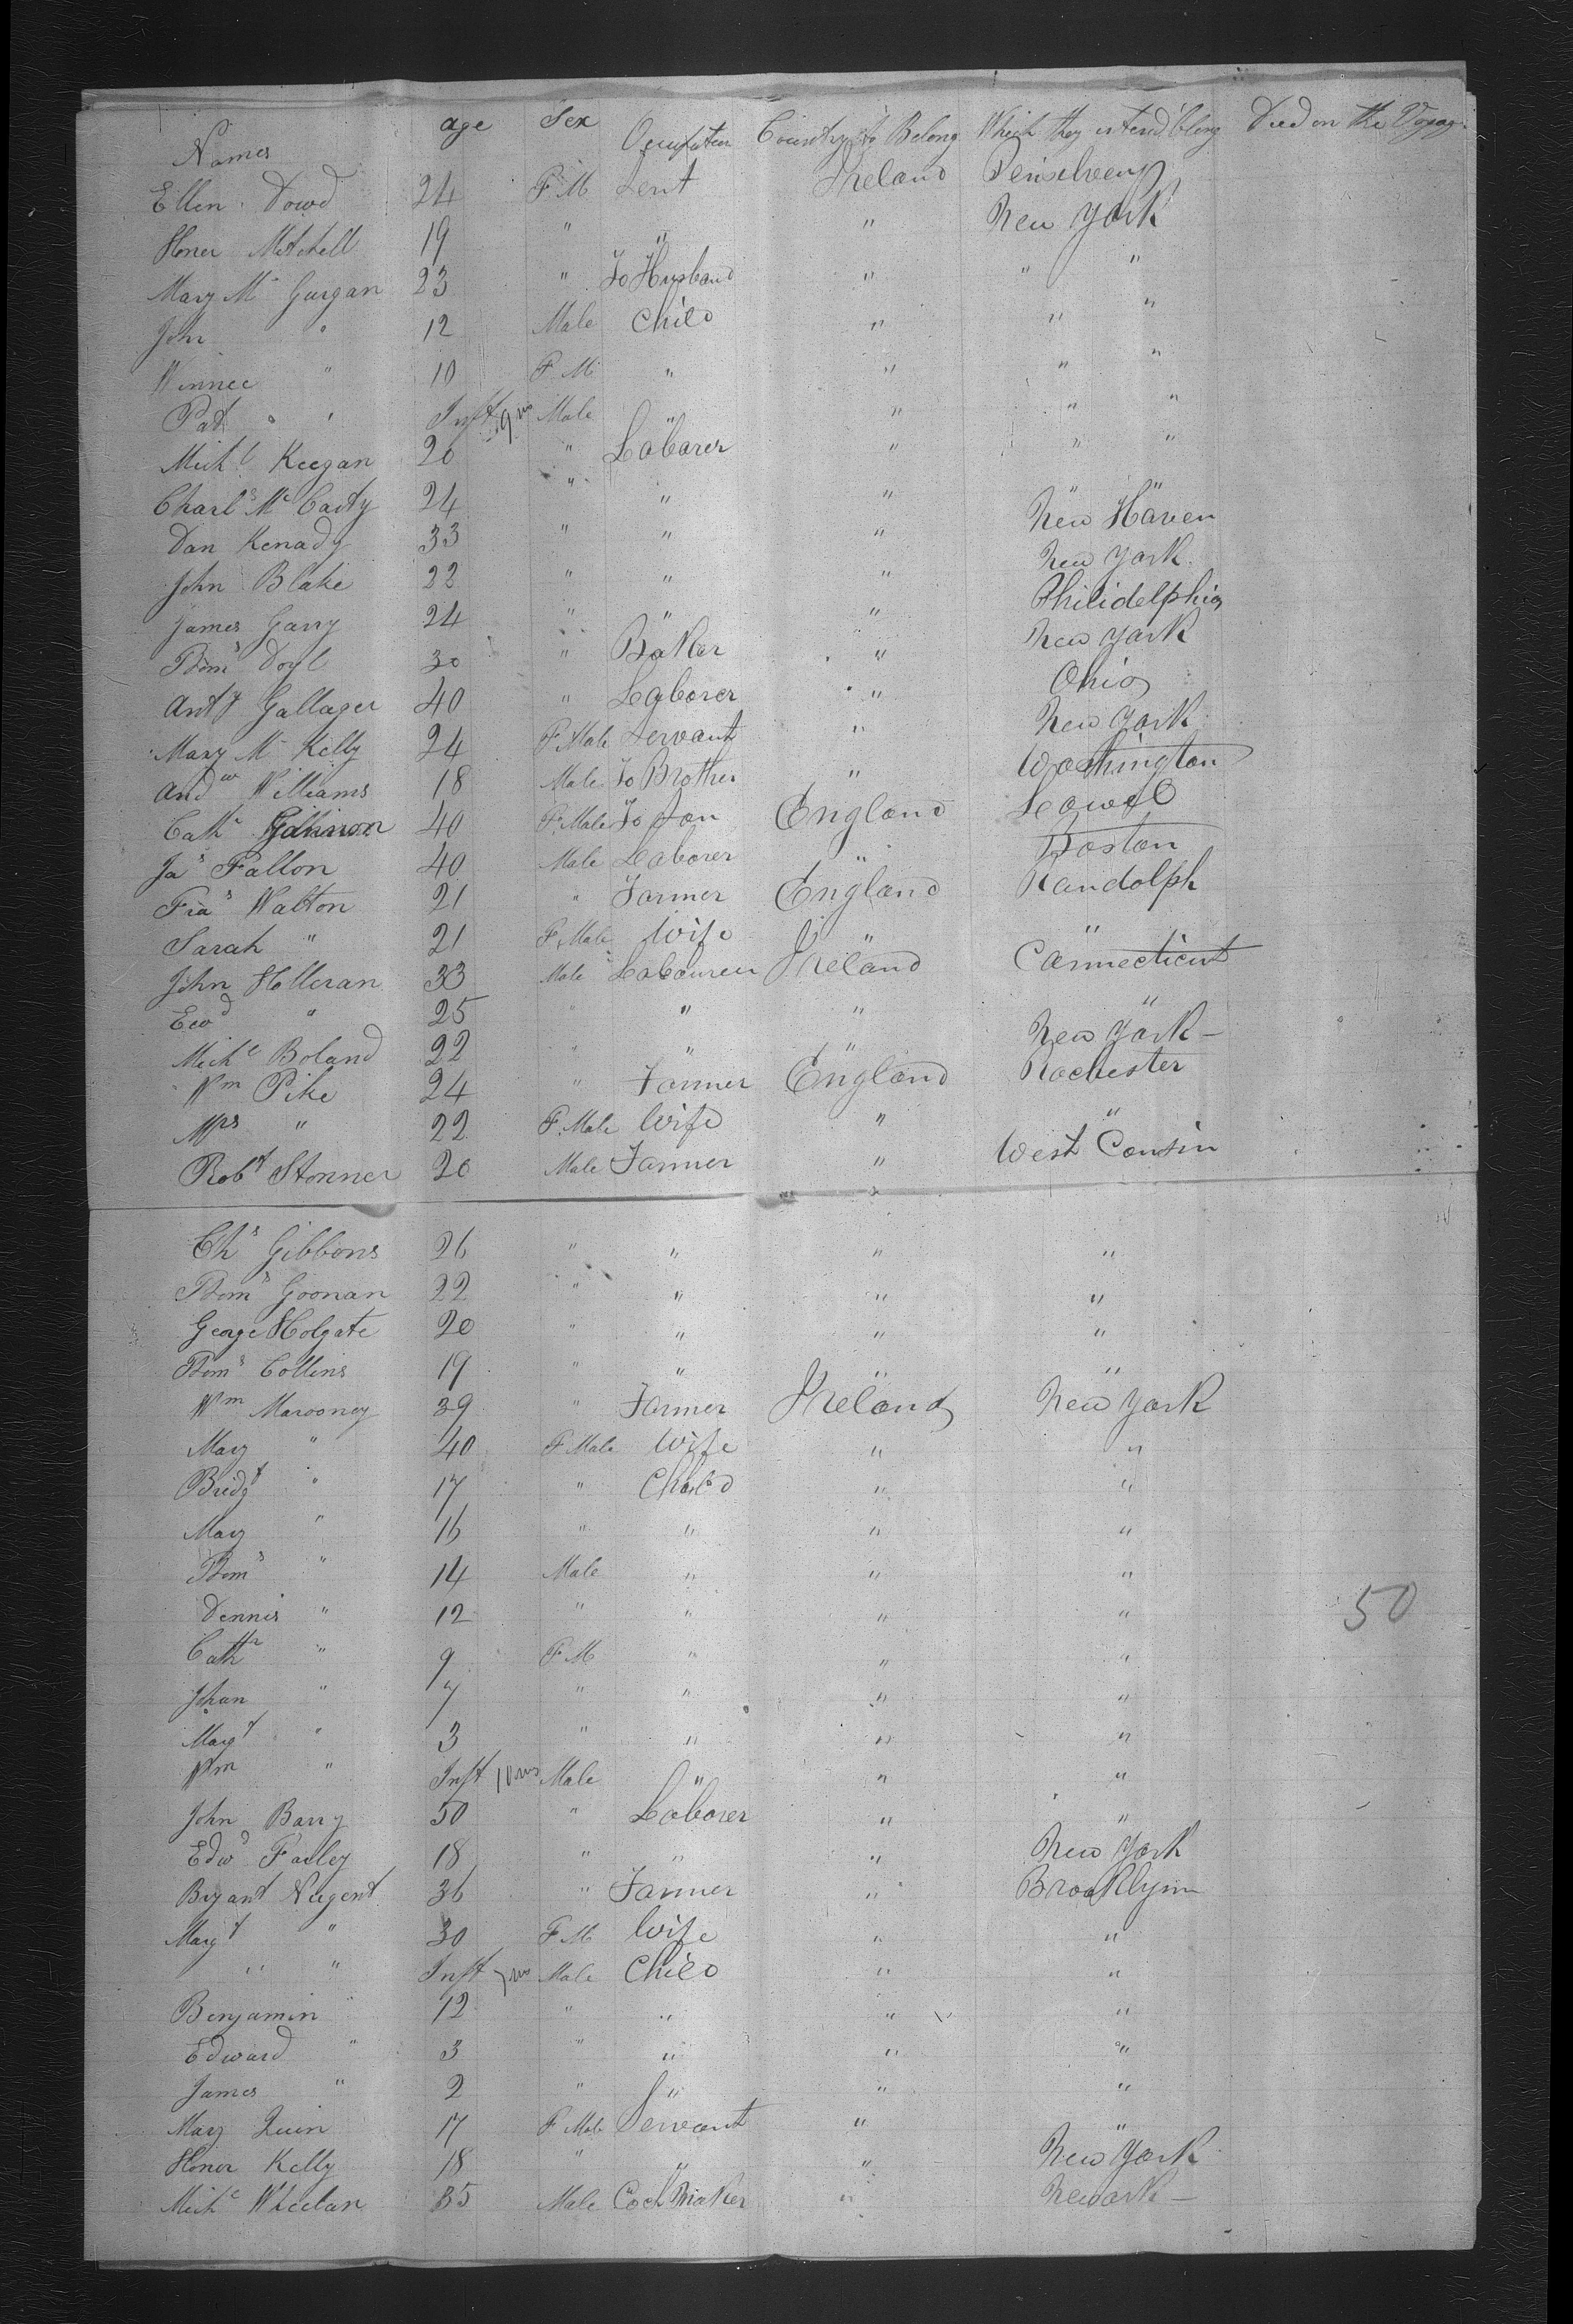 Names age Sex Occupation Country to Belong Which they intend'blong Died on the Voyag
Ellen Dowd 24 F M Servt Ireland Penselveny
Honer Mitchell 19 " " " New York
Mary Mc Gurgan 23 " To Husband " " "
John " 12 Male Child " " "
Winnee " 10 F M " " " "
Pat " " Inft 9 ms Male " " " "
Michl Keegan 20 " Laborer " " "
Charls Mc Carty 24 " " " " "
Dan Kenady 33 " " " New Haven
John Blake 22 " " " New York
James Garry 24 " " " Philidelphia
Thoms Doyl 30 " Baker " New York
Anty Gallager 40 " Laborer " Ohio
Mary Mc Kelly 24 F Male Servant " New York
Andw Williams 18 Male To Brother " Washington
Cathe Gannon 40 F Male To Son England Lowel
Jas Fallon 40 Male Laborer " Boston
Fras Walton 21 " Farmer England Randolph
Sarah " 21 F Male Wife " "
John Holleran 33 Male Labourer Ireland Connecticut
Ewd " 25 " " " "
Michl Boland 22 " " " New York -
Wm Pike 24 " Farmer England Rochester
Mrs " 22 F. Male Wife " "
Robt Stonner 20 Male Farmer " West Consin
Chs Gibbons 26 " " " "
Thoms Goonan 22 " " " "
George Holgate 20 " " " "
Thoms Collins 19 " " " "
Wm Marooney 39 " Farmer Ireland New York
Mary " 40 F Male Wife " "
Bridgt " 17 " Child " "
Mary " 16 " " " "
Thoms " 14 Male " " "
Dennis " 12 " " " "
Cathn " 9 F M " " "
Johan " 7 " " " "
Margt " 3 " " " "
Wm " Inft 10 ms Male " " "
John Barry 50 " Laborer " "
Edwd Farley 18 " " " New York
Bryant Nugent 36 " Farmer " Brooklynn
Margt " 30 F M Wife " "
" " Inft 7 ms Male Child " "
Benjamin " 12 " " " "
Edward " 3 " " " "
James " 2 " " " "
Mary Quin 17 F Male Servant " "
Honer Kelly 18 " " " New York
Miche Wheelan 35 Male Coch Maker " Newark -
50